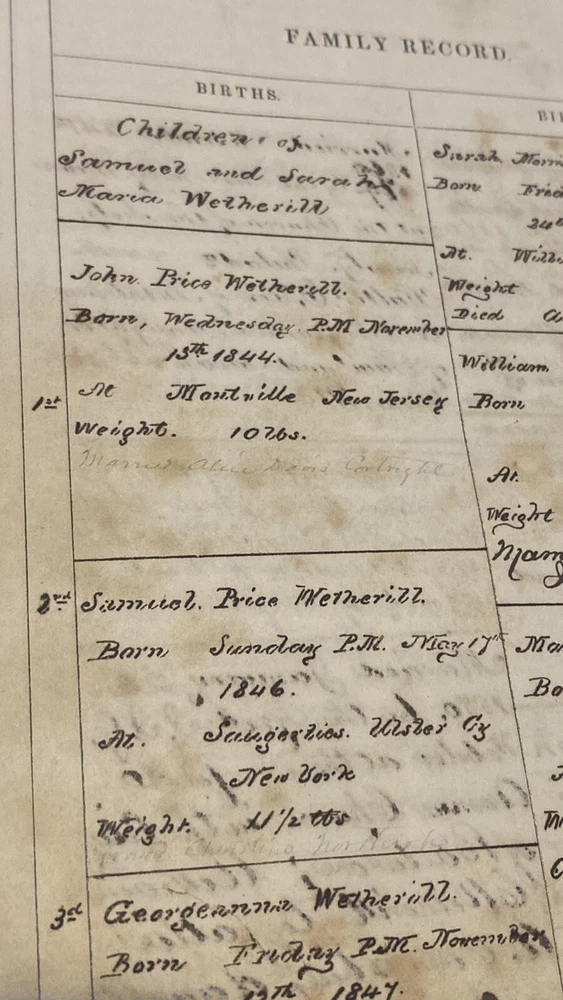 FAMILY RECORD.
BIRTHS.
Children of
Samuel and Sarah
Maria Wetherill
John Price Wetherill.
Born, Wednesday P.M November
13th 1844.
1st At Montville New Jersey
Weight. 10 lbs.
Married Alice Cortright
2nd Samuel. Price Wetherill.
Born Sunday P.M. May 17th
1846.
At. Saugerties. Ulster Cy
New York
Weight. 11 1/2 lbs
3rd Georgeanna Wetherill.
Born Friday P.M. November
1847.
Sarah Morris
Born
24th
At.
Weight
Died
William
Born
At.
Weight